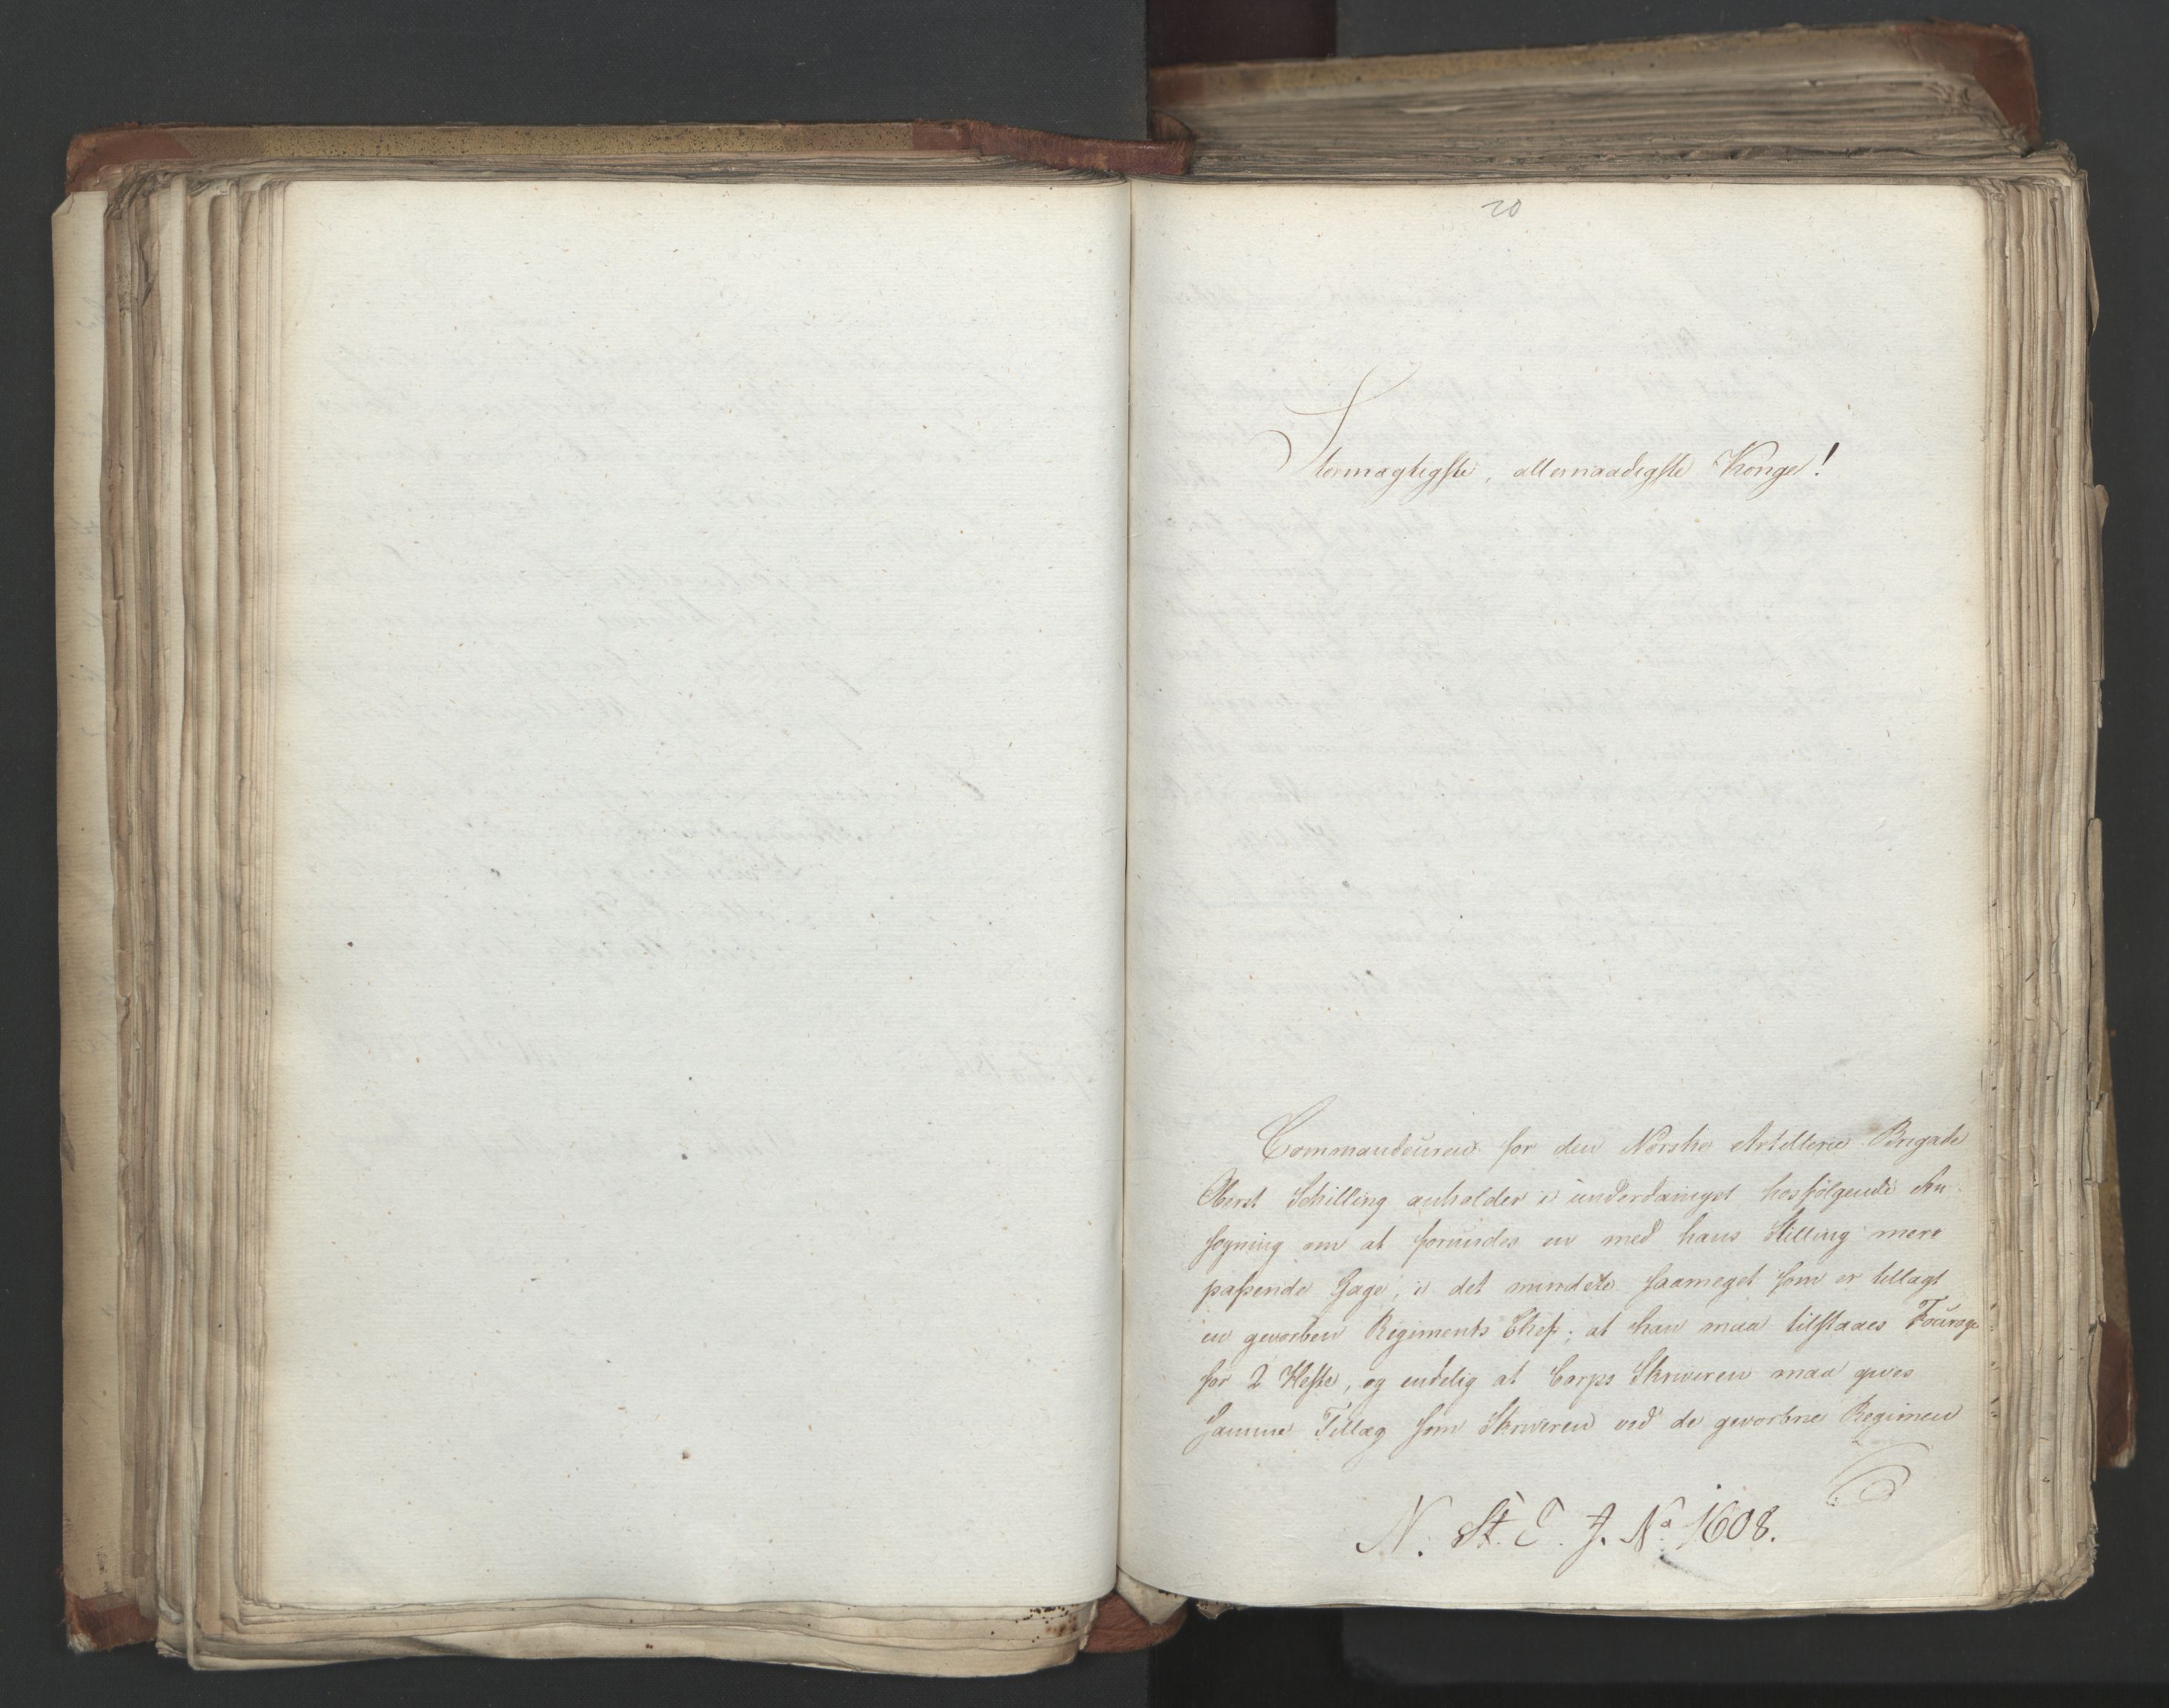 20
Stormægtigste, allernaadigste Konge!
Commandeuren for den Norske Artillerie Brigade
Oberst Schilling anholder i underdanigst hosfølgende An-
søgning om at forundes en med hans Stilling mere
passende Gage, i det mindste saameget som er tillagt
en gevorben Regiments Chef; at han maa tilstaaes Fourage
for 2 Heste, og endelig at Corps Skriveren maa gives
samme Tillæg som Skriveren ved de gevorbne Regimen
N. St. E. J. No 1608.